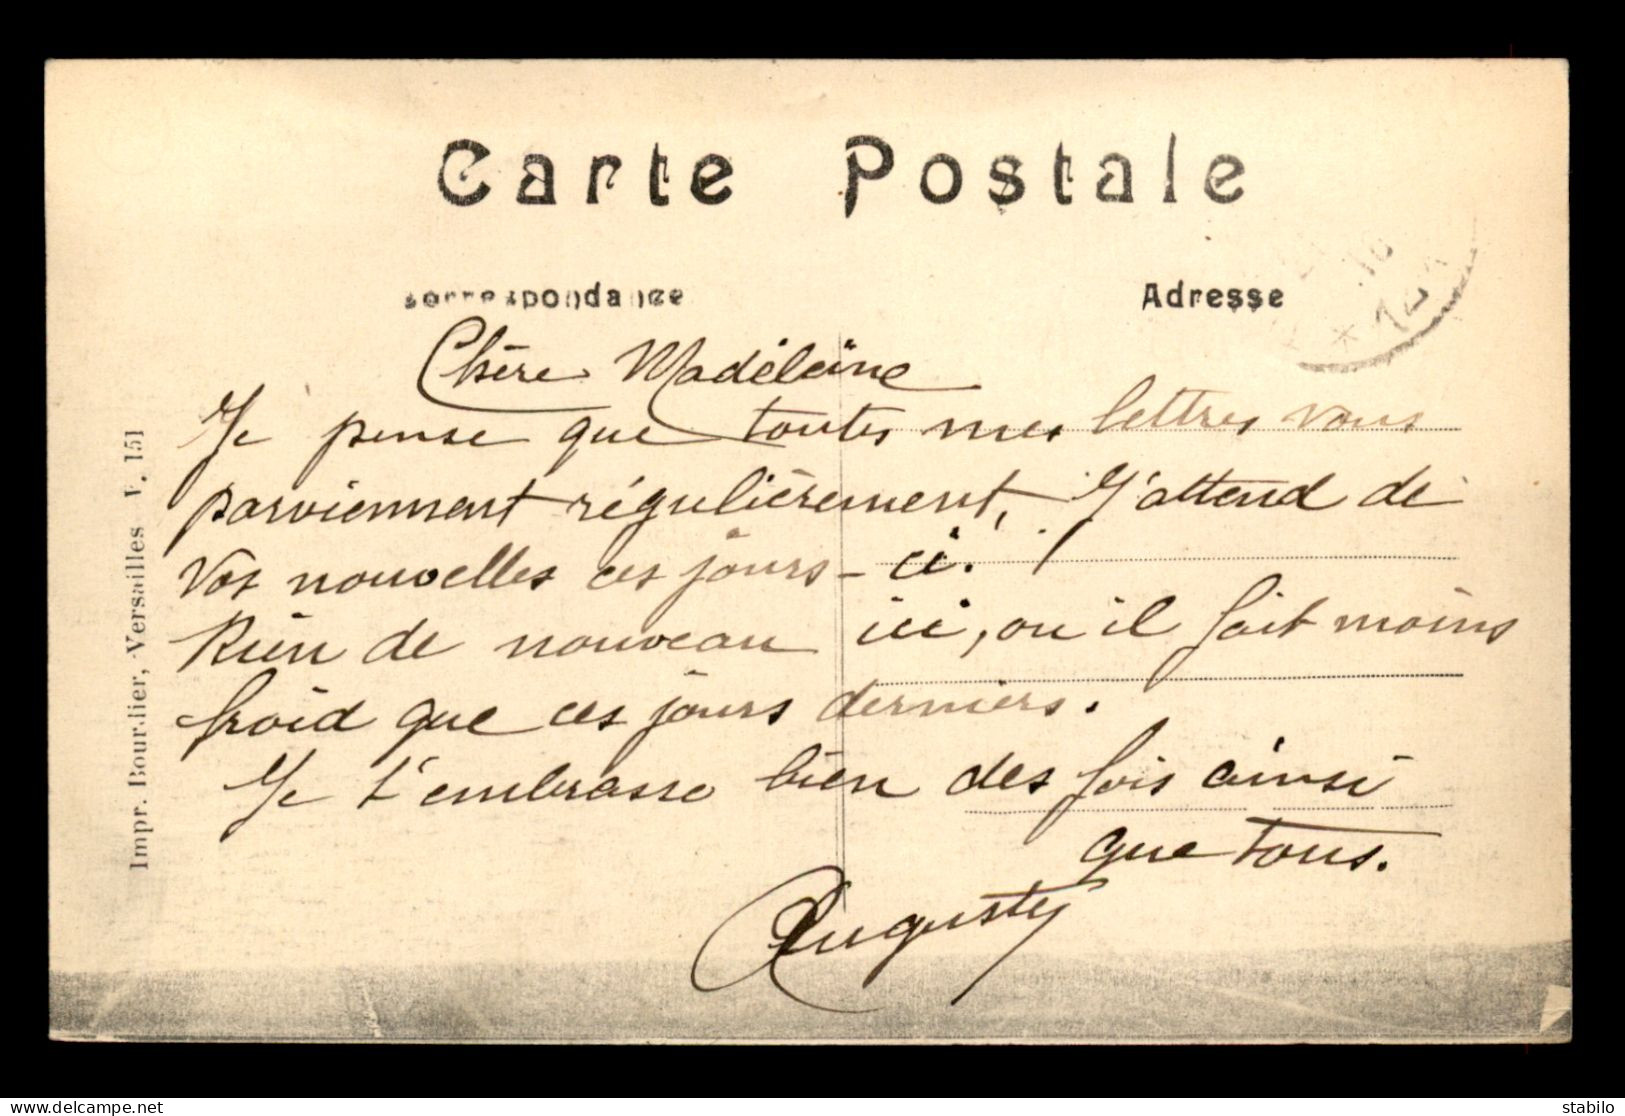 Carte Postale
Correspondance
Adresse
Chère Madeleine
Je pense que toutes mes lettres vous
parviennent régulièrement, J'attend de
vos nouvelles ces jours-ci.
Rien de nouveau ici, où il fait moins
froid que ces jours derniers.
Je t'embrasse bien des fois ainsi
que tous.
Impr. Bourdier, Versailles V. 151
delcampe.net
stabilo